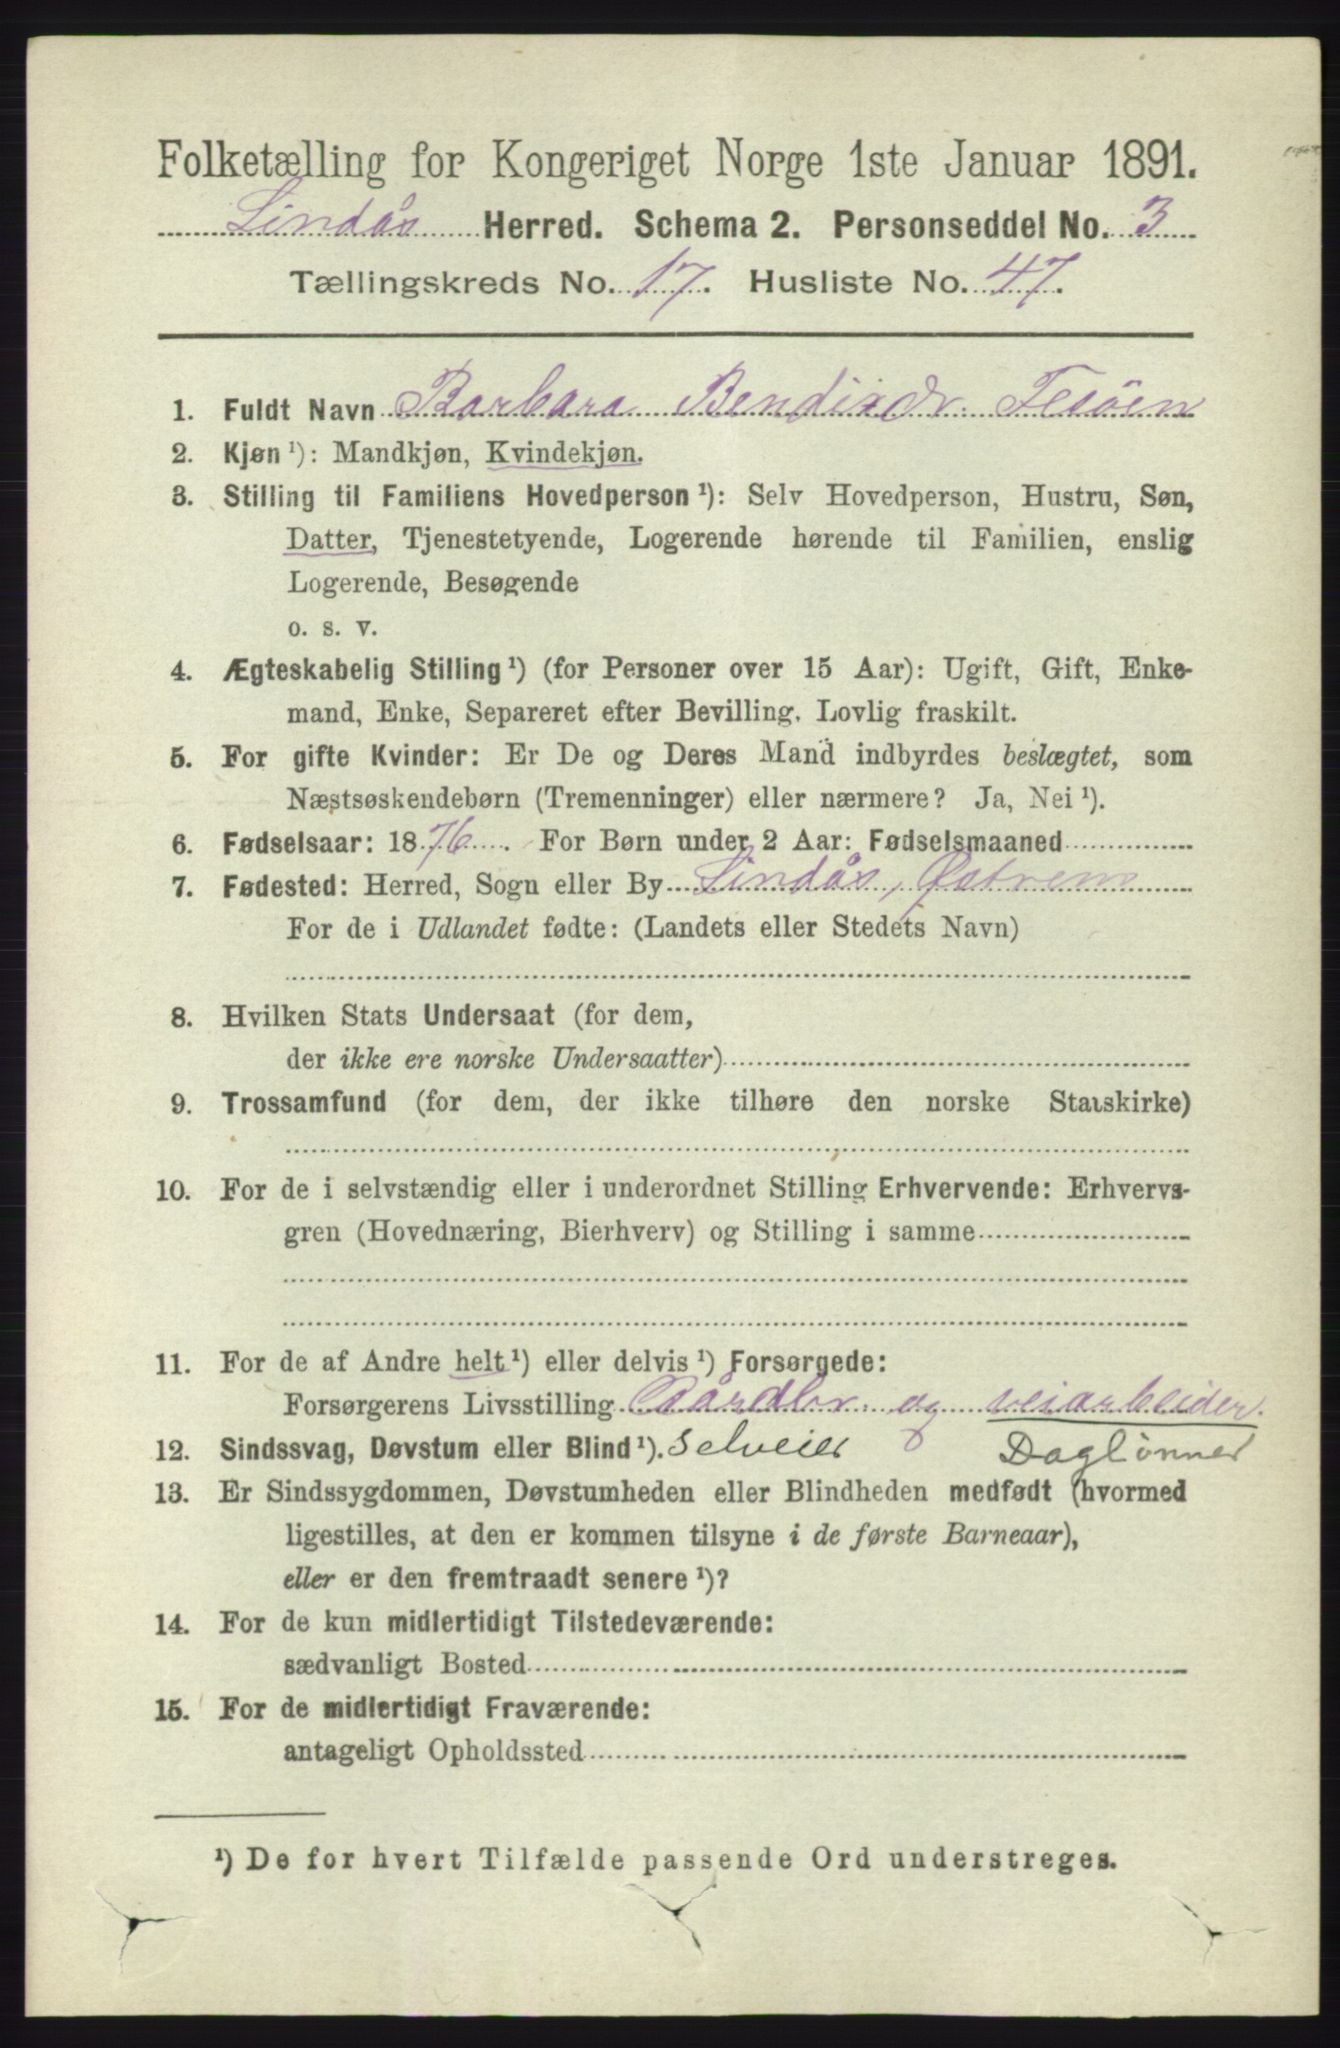 Folketælling for Kongeriget Norge 1ste Januar 1891.
Lindås Herred. Schema 2. Personseddel No. 3
Tællingskreds No. 17. Husliste No. 47.
1. Fuldt Navn Barbara Bendixdr. Fesöen
2. Kjøn ¹): Mandkjøn, Kvindekjøn.
3. Stilling til Familiens Hovedperson ¹): Selv Hovedperson, Hustru, Søn,
Datter, Tjenestetyende, Logerende hørende til Familien, enslig
Logerende, Besøgende
o. s. v.
4. Ægteskabelig Stilling ¹) (for Personer over 15 Aar): Ugift, Gift, Enke-
mand, Enke, Separeret efter Bevilling. Lovlig fraskilt.
5. For gifte Kvinder: Er De og Deres Mand indbyrdes beslægtet, som
Næstsøskendebørn (Tremenninger) eller nærmere? Ja, Nei ¹).
6. Fødselsaar: 1876. For Børn under 2 Aar: Fødselsmaaned
7. Fødested: Herred, Sogn eller By Lindås, Østrem
For de i Udlandet fødte: (Landets eller Stedets Navn)
8. Hvilken Stats Undersaat (for dem,
der ikke ere norske Undersaatter)
9. Trossamfund (for dem, der ikke tilhøre den norske Statskirke)
10. For de i selvstændig eller i underordnet Stilling Erhvervende: Erhvervs-
gren (Hovednæring, Bierhverv) og Stilling i samme
11. For de af Andre helt ¹) eller delvis ¹) Forsørgede:
Forsørgerens Livsstilling Gårdbr. og veiarbeider.
12. Sindssvag, Døvstum eller Blind ¹). Selveier Daglönner
13. Er Sindssygdommen, Døvstumheden eller Blindheden medfødt (hvormed
ligestilles, at den er kommen tilsyne i de første Barneaar),
eller er den fremtraadt senere ¹)?
14. For de kun midlertidigt Tilstedeværende:
sædvanligt Bosted
15. For de midlertidigt Fraværende:
antageligt Opholdssted
¹) De for hvert Tilfælde passende Ord understreges.